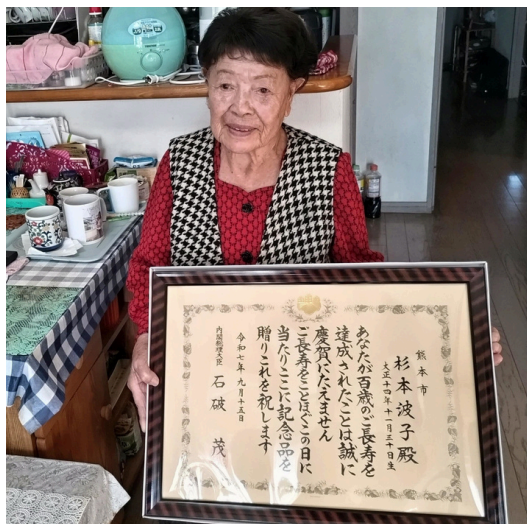 熊本市
杉本波子殿
大正十四年十一月三十日生
あなたが百歳のご長寿を
達成されたことは誠に
慶賀にたえません
ご長寿をことほぐこの日に
当たりここに記念品を
贈りこれを祝します
令和七年九月十五日
内閣総理大臣 石破 茂